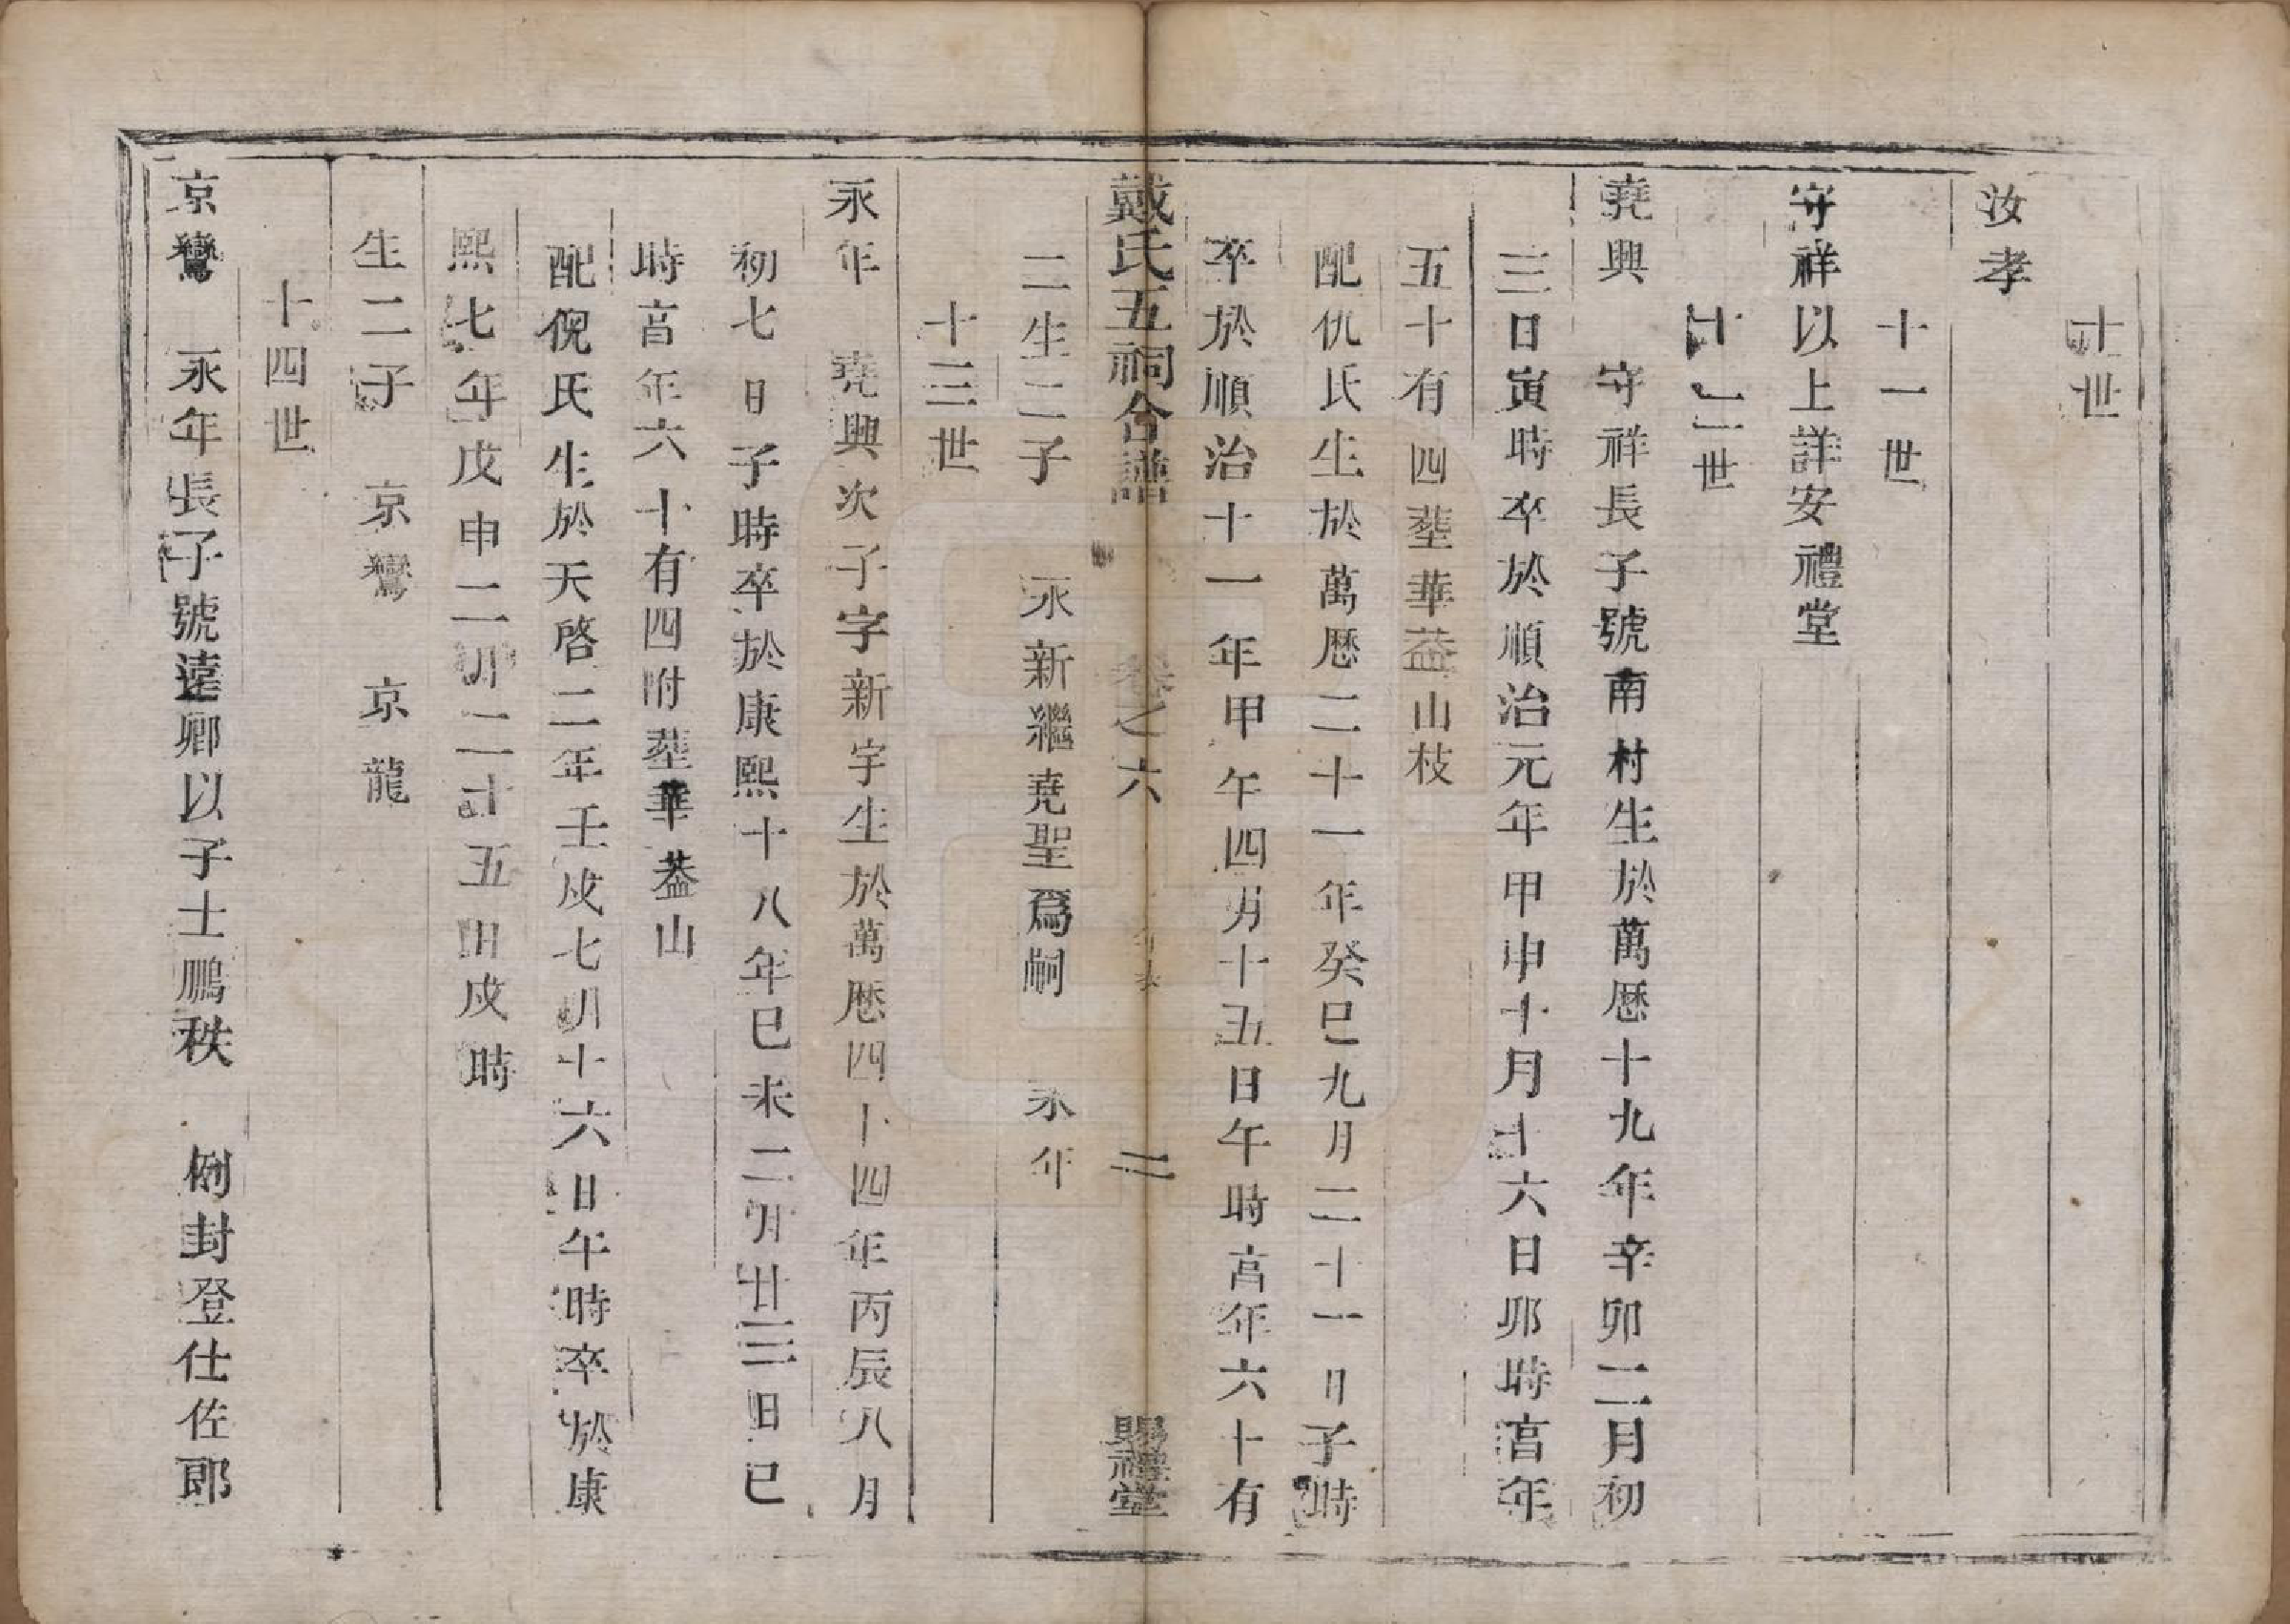 十世
汝孝
十一世
守祥以上詳安禮堂
十二世
堯興　守祥長子號南村生於萬厯十九年辛卯二月初
三日寅時卒於順治元年甲申十月十六日卯時享年
五十有四塟華葢山枝
配仇氏生於萬厯二十一年癸巳九月二十一日子時
卒於順治十一年甲午四月十五日午時享年六十有
二生二子　永新繼堯聖爲嗣　永年
戴氏五祠合譜　卷之六　二　賜禮堂
十三世
永年　堯興次子字新宇生於萬厯四十四年丙辰八月
初七日子時卒於康熙十八年巳未二月廿三日巳
時享年六十有四附塟華葢山
配倪氏生於天啓二年壬戌七月十六日午時卒於康
熙七年戊申二月二十五日戌時
生二子　京鸞　京龍
十四世
京鸞　永年長子號遠卿以子士鵬秩　例封登仕佐郎